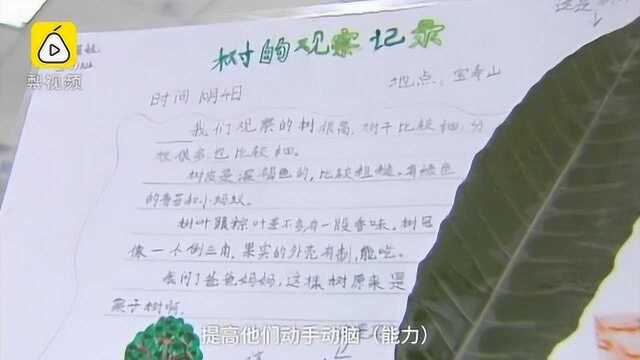 梨视频
树的观察记录
时间 10月4日
地点:宝寿山
我们观察的树很高,树干比较细,分
枝很多也比较细。
树皮是深褐色的,比较粗糙。有绿色
的青苔和小蚂蚁。
树叶跟粽叶差不多有一股香味。树冠
像一个倒三角,果实的外壳有刺,能吃。
我问了爸爸妈妈,这棵树原来是
栗子树啊。
提高他们动手动脑(能力)